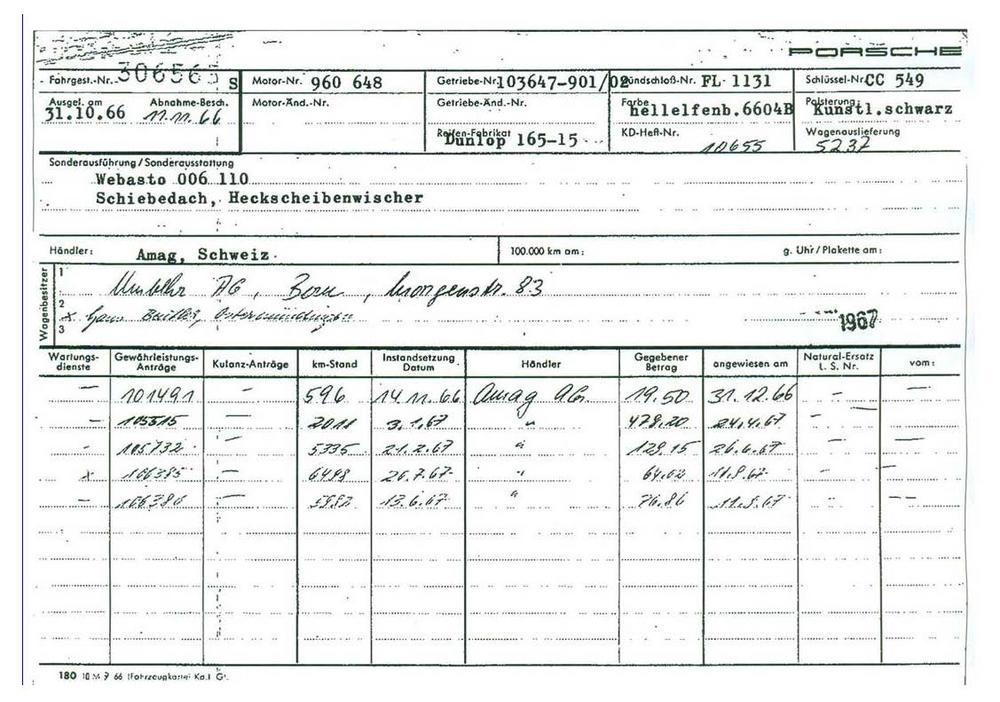 PORSCHE
Fahrgest.-Nr. 306565 S Motor-Nr. 960 648 Getriebe-Nr. 103647-901/02 Zündschloß-Nr. FL 1131 Schlüssel-Nr. CC 549
Ausgel. am Abnahme-Besch. Motor-Änd.-Nr. Getriebe-Änd.-Nr. Farbe hellelfenb.6604B Polsterung Kunstl.schwarz
31.10.66 11.11.66
Reifen-Fabrikat Dunlop 165-15 KD-Heft-Nr. 10655 Wagenauslieferung 5237
Sonderausführung / Sonderausstattung
Webasto 006 110
Schiebedach, Heckscheibenwischer
Händler: Amag, Schweiz. 100.000 km am: g. Uhr / Plakette am:
Wagenbesitzer
1
AG, Bern, 83
2
x
3 1967
Wartungs-dienste Gewährleistungs-Anträge Kulanz-Anträge km-Stand Instandsetzung Datum Händler Gegebener Betrag angewiesen am Natural-Ersatz L. S. Nr. vom:
— 101491 — 596 14.11.66 Amag AG. 19.50 31.12.66 — —
— 105315 — 2011 3.1.67 " 478.20 24.4.67 — —
- 105732 — 5335 21.2.67 " 129.15 26.6.67 — —
x 166385 — 6498 26.7.67 " 64.02 11.9.67 — —
— 166386 — 13.6.67 " 76.86 11.9.67 — —
180 10 M 9 66 (Fahrzeugkartei Kd.)